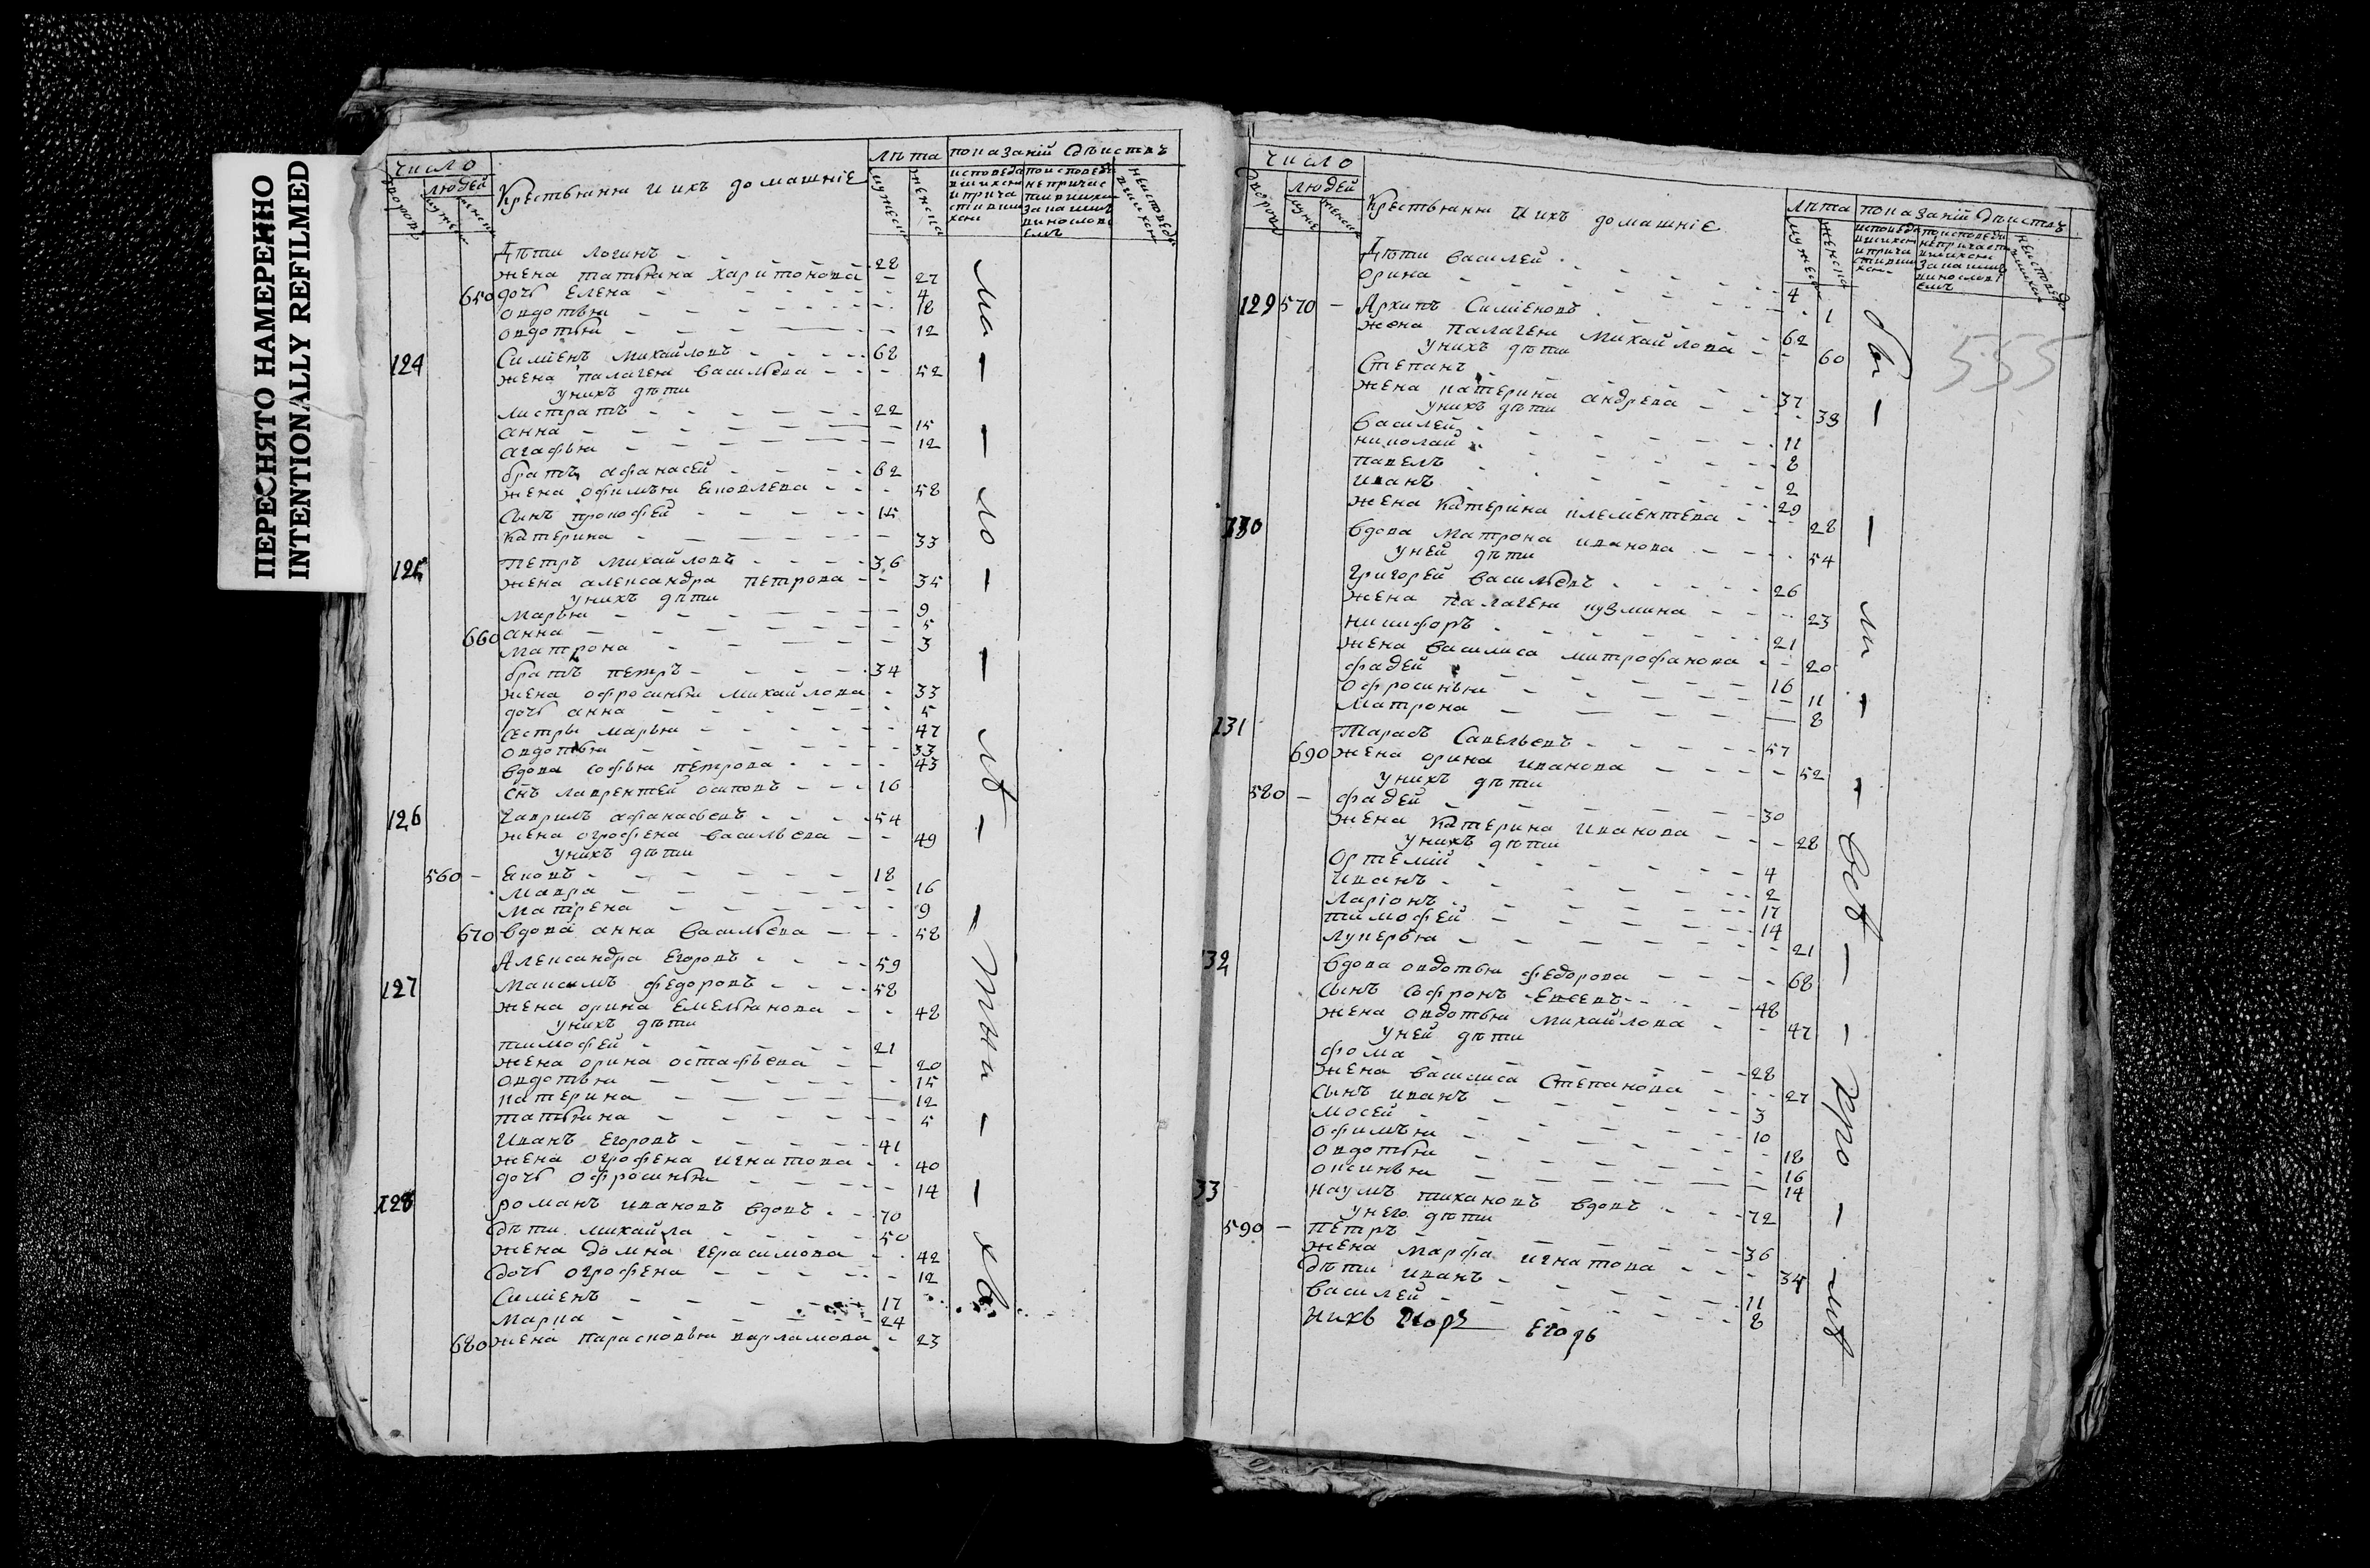 ПЕРЕСНЯТО НАМЕРЕННО
INTENTIONALLY REFILMED
число
людей
Крестьянѣ и ихъ домашніе
лѣта
показаній дѣиствъ
Дѣти логинъ 28
жена татьяна харитонова 27
650 дочь елена 4
овдотья 18
овдотья 12
124 Симіенъ михайловъ 68
жена палагея васильева 52
у нихъ дѣти
листратъ 22
анна 15
агафья 12
братъ афанасей 62
жена офимья яковлева 58
сынъ прокофей 15
катерина 33
125 Петръ михайловъ 36
жена александра петрова 35
у нихъ дѣти
марья 9
660 анна 5
матрона 3
братъ петръ 34
жена офросинья михайлова 33
дочь анна 5
сестры марья 47
овдотья 33
вдова софья петрова 43
снъ лаврентей осиповъ 16
126 Гаврилъ афанасьевъ 54
жена огрофена васильева 49
у нихъ дѣти
560 яковъ 18
мавра 16
матрена 9
670 вдова анна васильева 58
Александра егоровъ 59
127 Максимъ федоровъ 58
жена орина емельянова 48
у нихъ дѣти
тимофей 21
жена орина остафьева 20
овдотья 15
катерина 12
татьяна 5
Иванъ егоровъ 41
жена огрофена игнатова 40
дочь офросинья 14
128 романъ ивановъ вдовъ 70
дѣти михайла 50
жена домна герасимова 42
дочь огрофена 12
Симіенъ 17
марка 24
680 жена парасковья варламова 23
число
людей
Крестьянѣ и ихъ домашніе
лѣта
показаній дѣиствъ
555
Дѣти василей 4
орина 1
129 570 Архипъ Симіеновъ 62
жена палагея михайлова 60
у нихъ дѣти
Степанъ 37
жена катерина андрева 38
у нихъ дѣти
василей 11
николай 8
павелъ 2
иванъ 29
жена катерина клементева 28
130 вдова матрона иванова 54
у ней дѣти
григорей васильевъ 26
жена палагея кузмина 23
никифоръ 21
жена василиса митрофанова 20
фадей 16
офросинья 11
матрона 8
131 Тарасъ Савельевъ 57
690 жена орина иванова 52
у нихъ дѣти
580 фадей 30
жена катерина иванова 28
у нихъ дѣти
ортемій 4
иванъ 2
ларіонъ 17
тимофей 14
лукерья 21
132 вдова овдотья федорова 68
сынъ софронъ евсевъ 48
жена овдотья михайлова 47
у ней дѣти
фома 28
жена василиса Степанова 27
сынъ иванъ 3
мосей 10
офимья 18
овдотья 16
оксинья 14
33 наумъ тихановъ вдовъ 72
у него дѣти
590 петръ 36
жена марфа игнатова 34
дѣти иванъ 11
василей 8
Егоръ